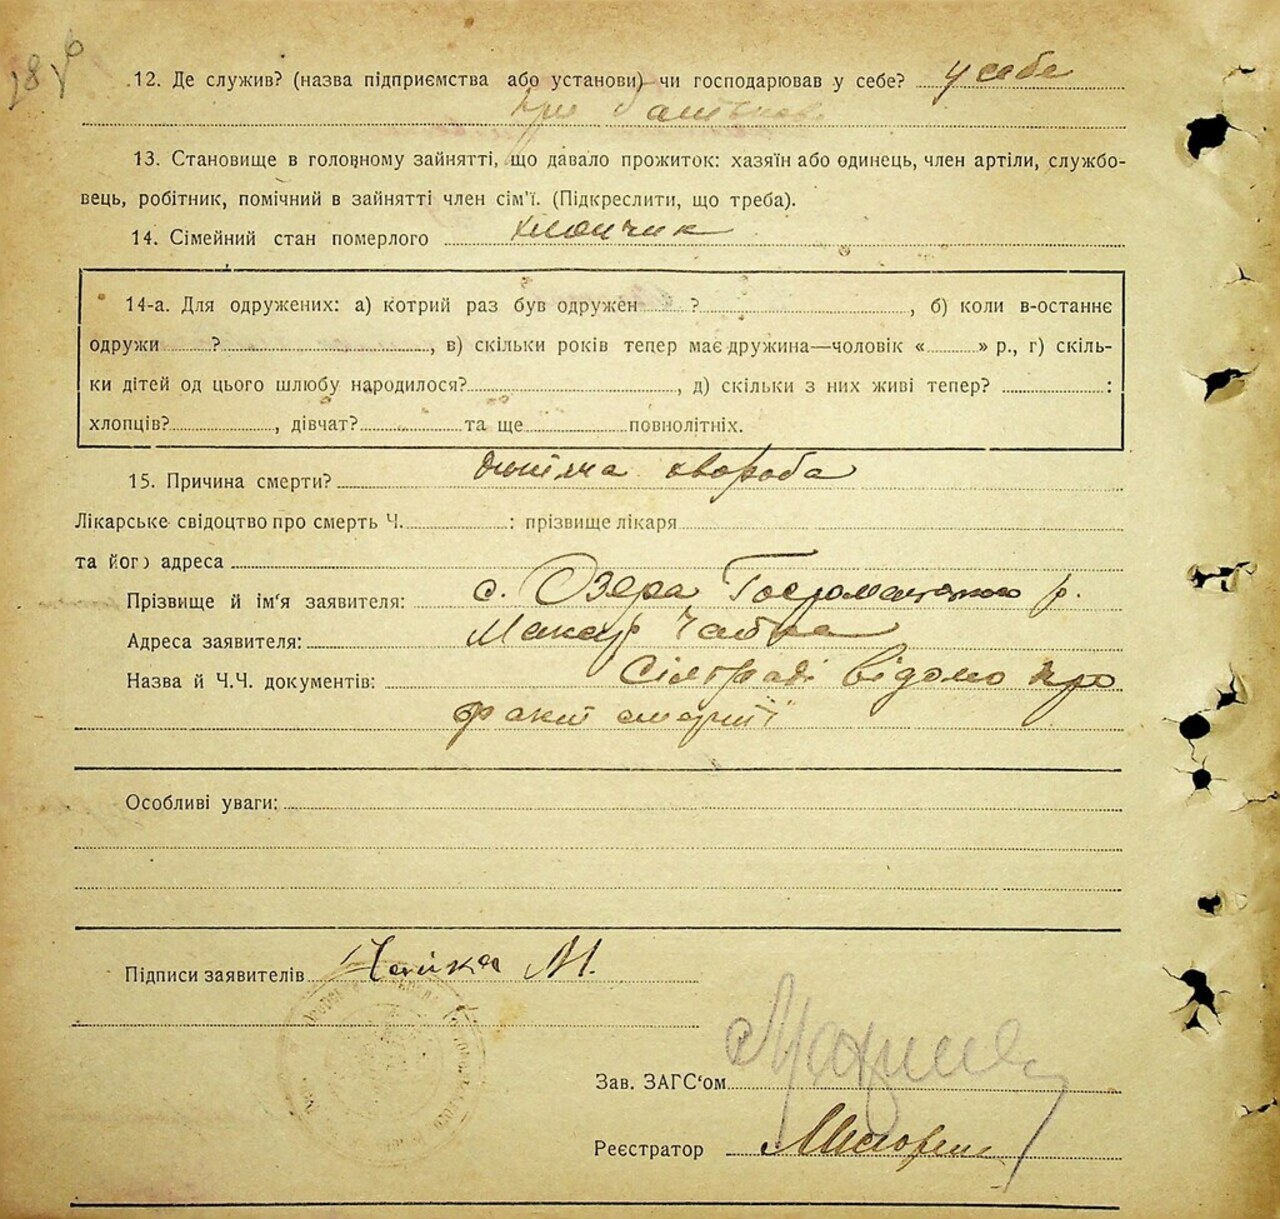 12. Де служив? (назва підприємства або установи) чи господарював у себе? у себе
при батькові
13. Становище в головному зайнятті, що давало прожиток: хазяїн або одинець, член артіли, службо-
вець, робітник, помічний в зайнятті член сім'ї. (Підкреслити, що треба).
14. Сімейний стан померлого хлопчик
14-а. Для одружених: а) котрий раз був одружен ? , б) коли в-останнє
одружи ? , в) скільки років тепер має дружина—чоловік « » р., г) скіль-
ки дітей од цього шлюбу народилося? , д) скільки з них живі тепер? :
хлопців? , дівчат? та ще повнолітніх.
15. Причина смерти? дитяча хвороба
Лікарське свідоцтво про смерть Ч. : прізвище лікаря
та його адреса
Прізвище й ім'я заявителя: с. Озера р.
Адреса заявителя: Макар Чайка
Назва й Ч.Ч. документів: Сільраді відомо про
факт смерти
Особливі уваги:
Підписи заявителів Чайка М.
Зав. ЗАГС'ом
Реєстратор